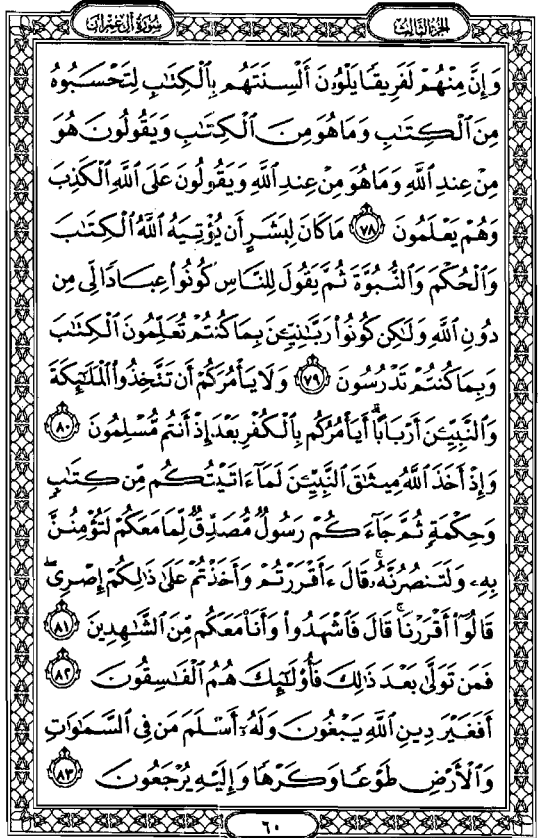 الجزء الثالث
سورة آل عمران
وَإِنَّ مِنْهُمْ لَفَرِيقًا يَلْوُۥنَ أَلْسِنَتَهُم بِٱلْكِتَٰبِ لِتَحْسَبُوهُ
مِنَ ٱلْكِتَٰبِ وَمَا هُوَ مِنَ ٱلْكِتَٰبِ وَيَقُولُونَ هُوَ
مِنْ عِندِ ٱللَّهِ وَمَا هُوَ مِنْ عِندِ ٱللَّهِ وَيَقُولُونَ عَلَى ٱللَّهِ ٱلْكَذِبَ
وَهُمْ يَعْلَمُونَ ٧٨ مَا كَانَ لِبَشَرٍ أَن يُؤْتِيَهُ ٱللَّهُ ٱلْكِتَٰبَ
وَٱلْحُكْمَ وَٱلنُّبُوَّةَ ثُمَّ يَقُولَ لِلنَّاسِ كُونُوا۟ عِبَادًا لِّى مِن
دُونِ ٱللَّهِ وَلَٰكِن كُونُوا۟ رَبَّٰنِيِّۦنَ بِمَا كُنتُمْ تُعَلِّمُونَ ٱلْكِتَٰبَ
وَبِمَا كُنتُمْ تَدْرُسُونَ ٧٩ وَلَا يَأْمُرَكُمْ أَن تَتَّخِذُوا۟ ٱلْمَلَٰٓئِكَةَ
وَٱلنَّبِيِّۦنَ أَرْبَابًا ۗ أَيَأْمُرُكُم بِٱلْكُفْرِ بَعْدَ إِذْ أَنتُم مُّسْلِمُونَ ٨٠
وَإِذْ أَخَذَ ٱللَّهُ مِيثَٰقَ ٱلنَّبِيِّۦنَ لَمَآ ءَاتَيْتُكُم مِّن كِتَٰبٍ
وَحِكْمَةٍ ثُمَّ جَآءَكُمْ رَسُولٌ مُّصَدِّقٌ لِّمَا مَعَكُمْ لَتُؤْمِنُنَّ
بِهِۦ وَلَتَنصُرُنَّهُۥ ۚ قَالَ ءَأَقْرَرْتُمْ وَأَخَذْتُمْ عَلَىٰ ذَٰلِكُمْ إِصْرِى ۖ
قَالُوٓا۟ أَقْرَرْنَا ۚ قَالَ فَٱشْهَدُوا۟ وَأَنَا۠ مَعَكُم مِّنَ ٱلشَّٰهِدِينَ ٨١
فَمَن تَوَلَّىٰ بَعْدَ ذَٰلِكَ فَأُو۟لَٰٓئِكَ هُمُ ٱلْفَٰسِقُونَ ٨٢
أَفَغَيْرَ دِينِ ٱللَّهِ يَبْغُونَ وَلَهُۥٓ أَسْلَمَ مَن فِى ٱلسَّمَٰوَٰتِ
وَٱلْأَرْضِ طَوْعًا وَكَرْهًا وَإِلَيْهِ يُرْجَعُونَ ٨٣
٦٠